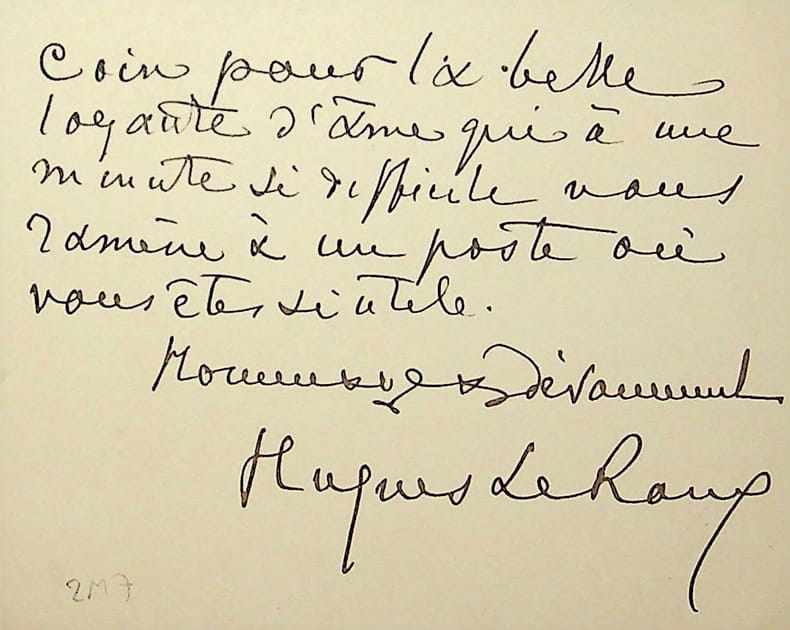 Coin pour la belle
loyauté d'âme qui à une
minute si difficile vous
ramène à un poste où
vous êtes si utile.
Hommages dévouement
Hugues Le Roux
2M7